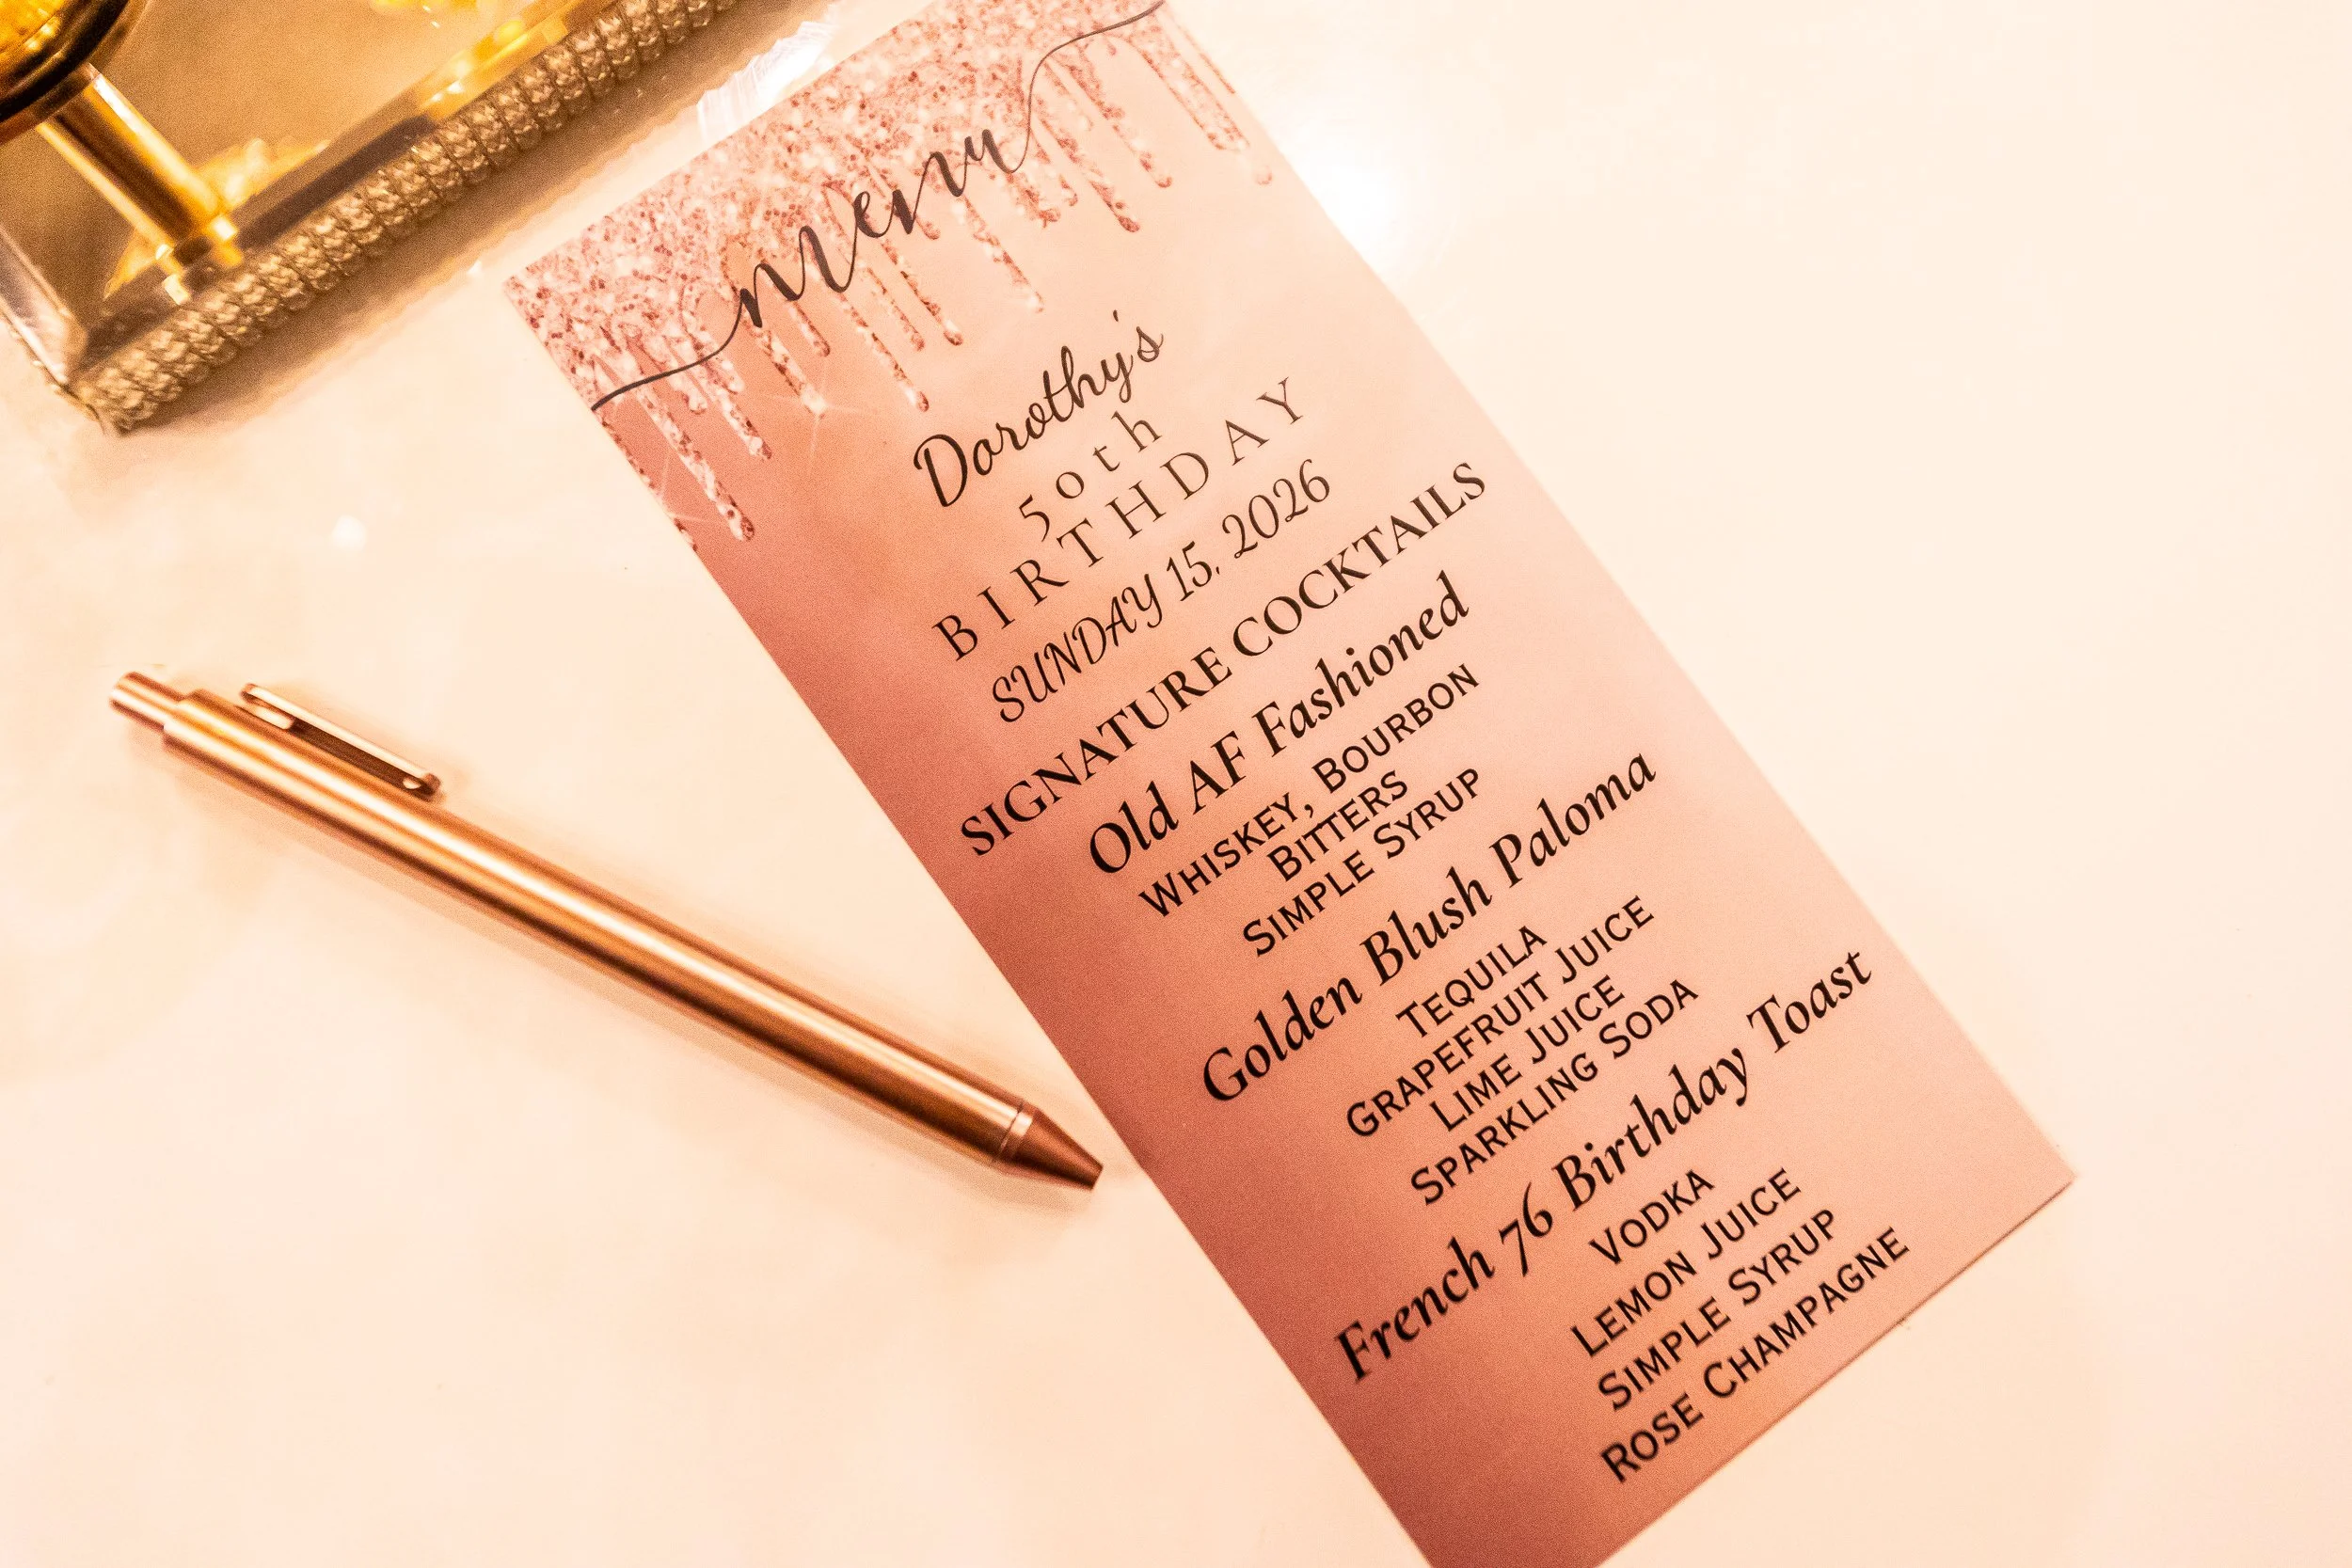 menu
Dorothy's
50th
BIRTHDAY
SUNDAY 15, 2026
SIGNATURE COCKTAILS
Old AF Fashioned
WHISKEY, BOURBON
BITTERS
SIMPLE SYRUP
Golden Blush Paloma
TEQUILA
GRAPEFRUIT JUICE
LIME JUICE
SPARKLING SODA
French 76 Birthday Toast
VODKA
LEMON JUICE
SIMPLE SYRUP
ROSE CHAMPAGNE